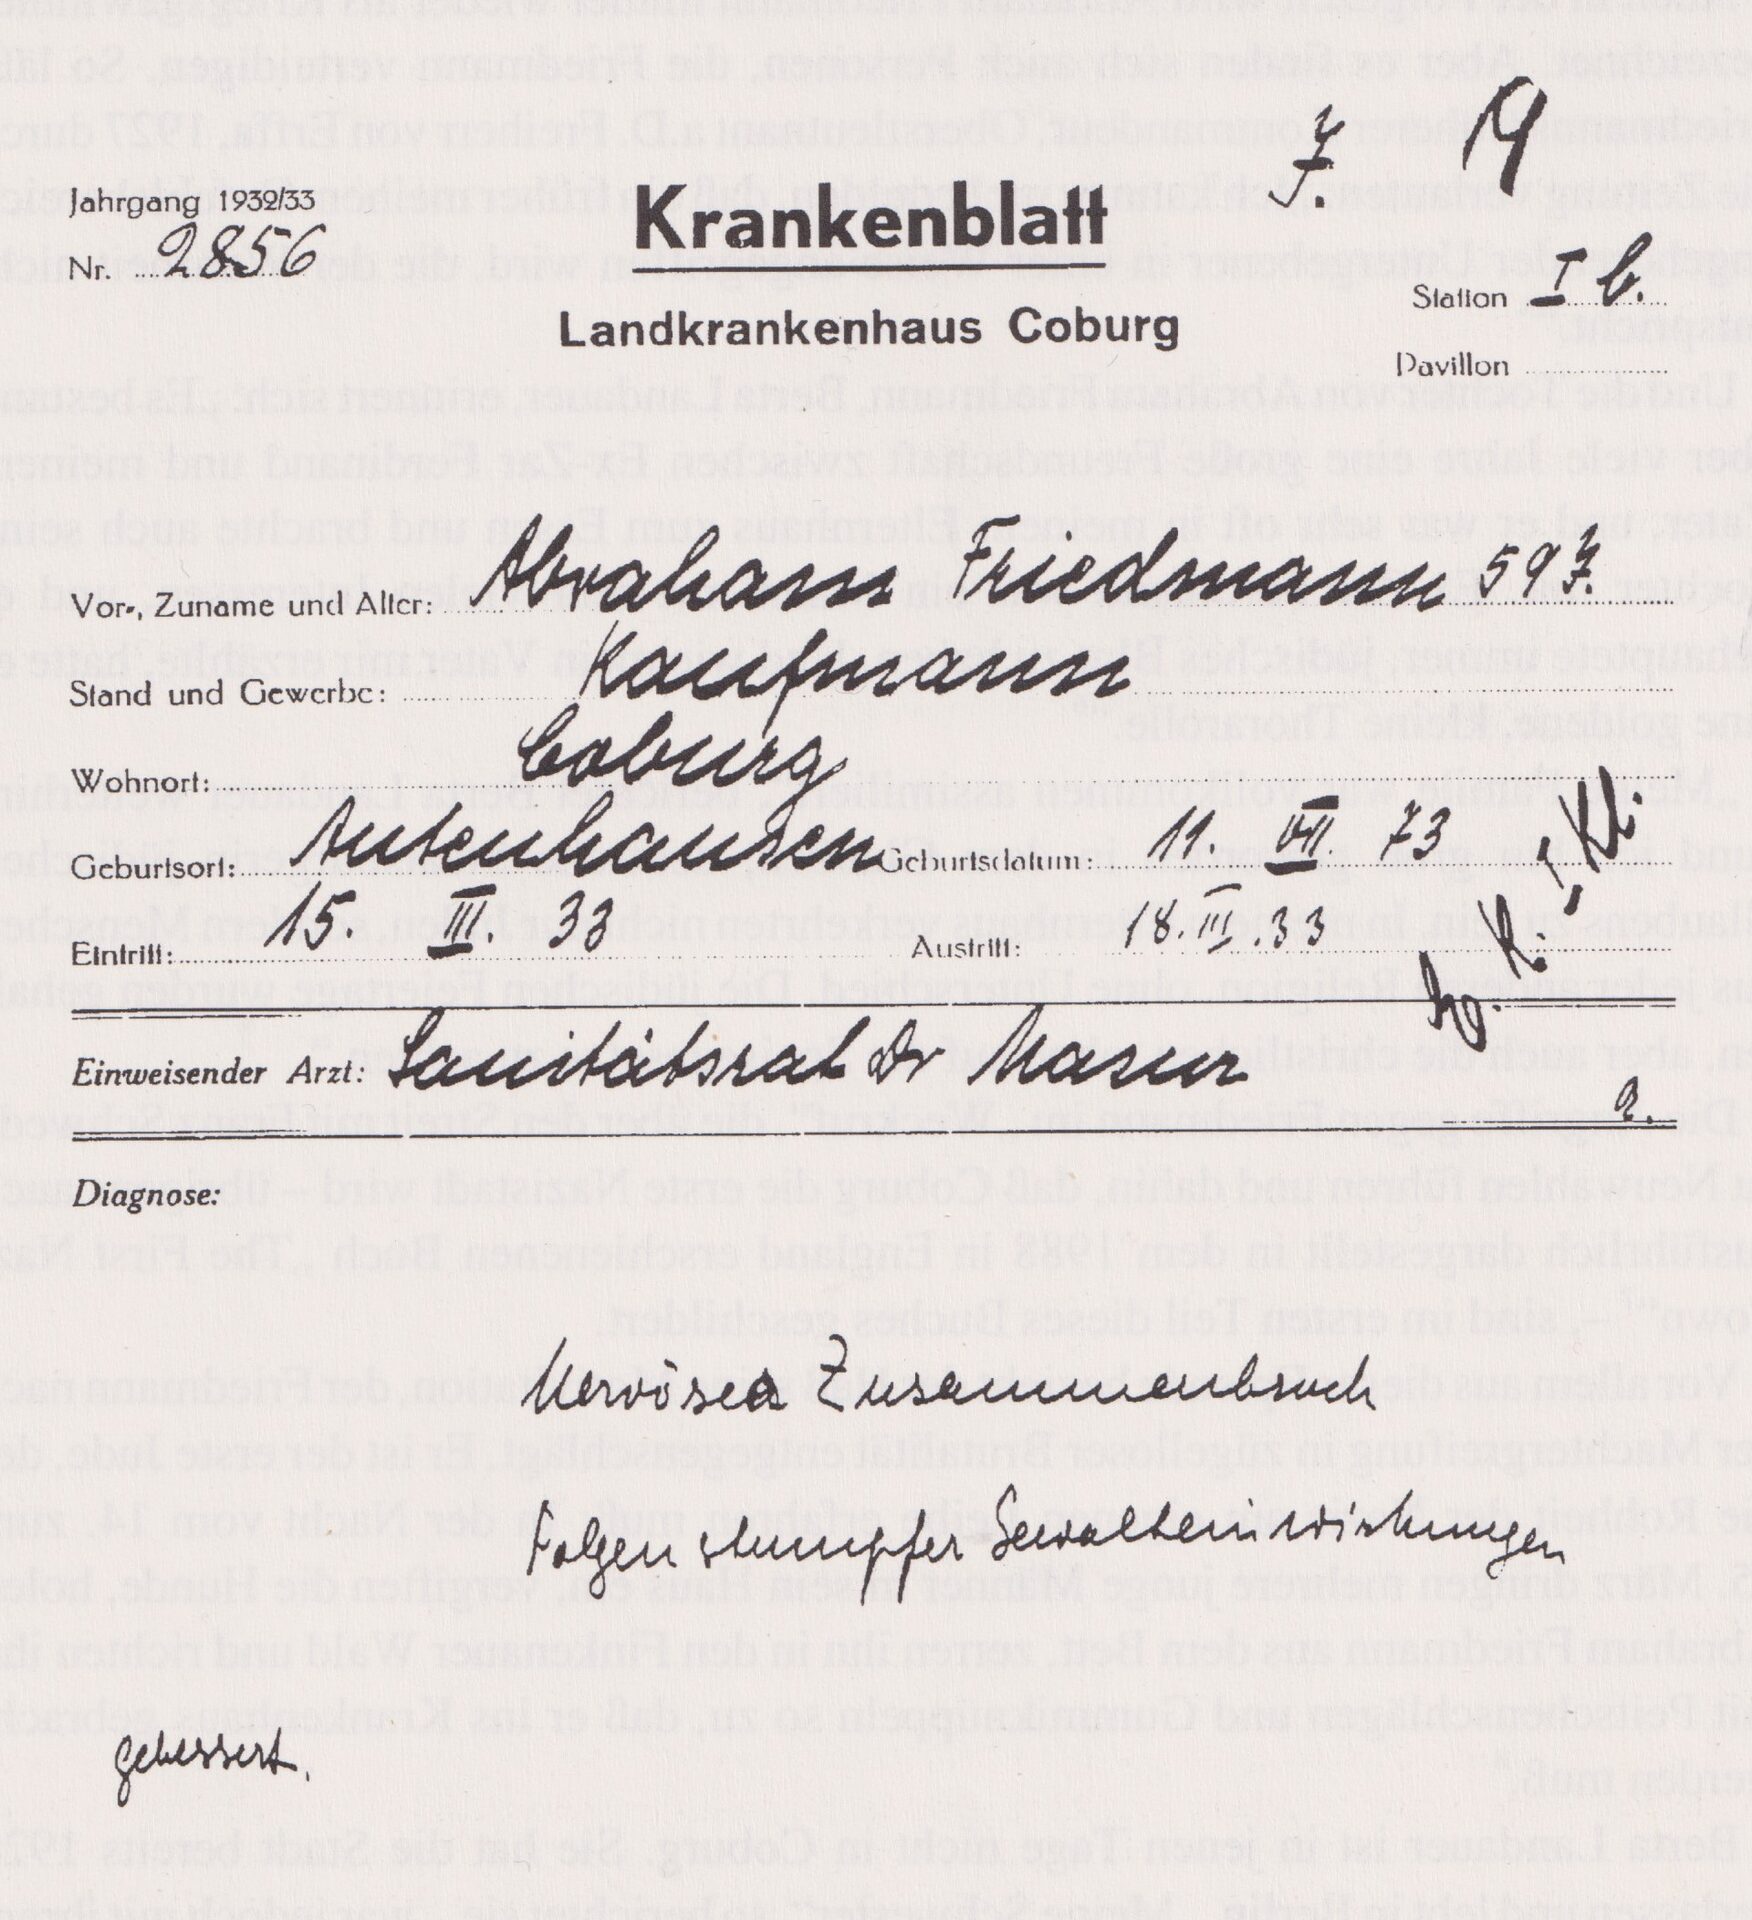 J. 19
Jahrgang 1932/33
Nr. 2856
Krankenblatt
Landkrankenhaus Coburg
Station I b.
Pavillon
Vor-, Zuname und Alter: Abraham Friedmann 59 J.
Stand und Gewerbe: Kaufmann
Wohnort: Coburg
Geburtsort: Autenhausen Geburtsdatum: 11. VII. 73
Eintritt: 15. III. 33 Austritt: 18. III. 33
K. I. Kl.
Einweisender Arzt: Sanitätsrat Dr Masur
2.
Diagnose:
Nervöser Zusammenbruch
Folgen stumpfer Gewalteinwirkungen
gebessert.